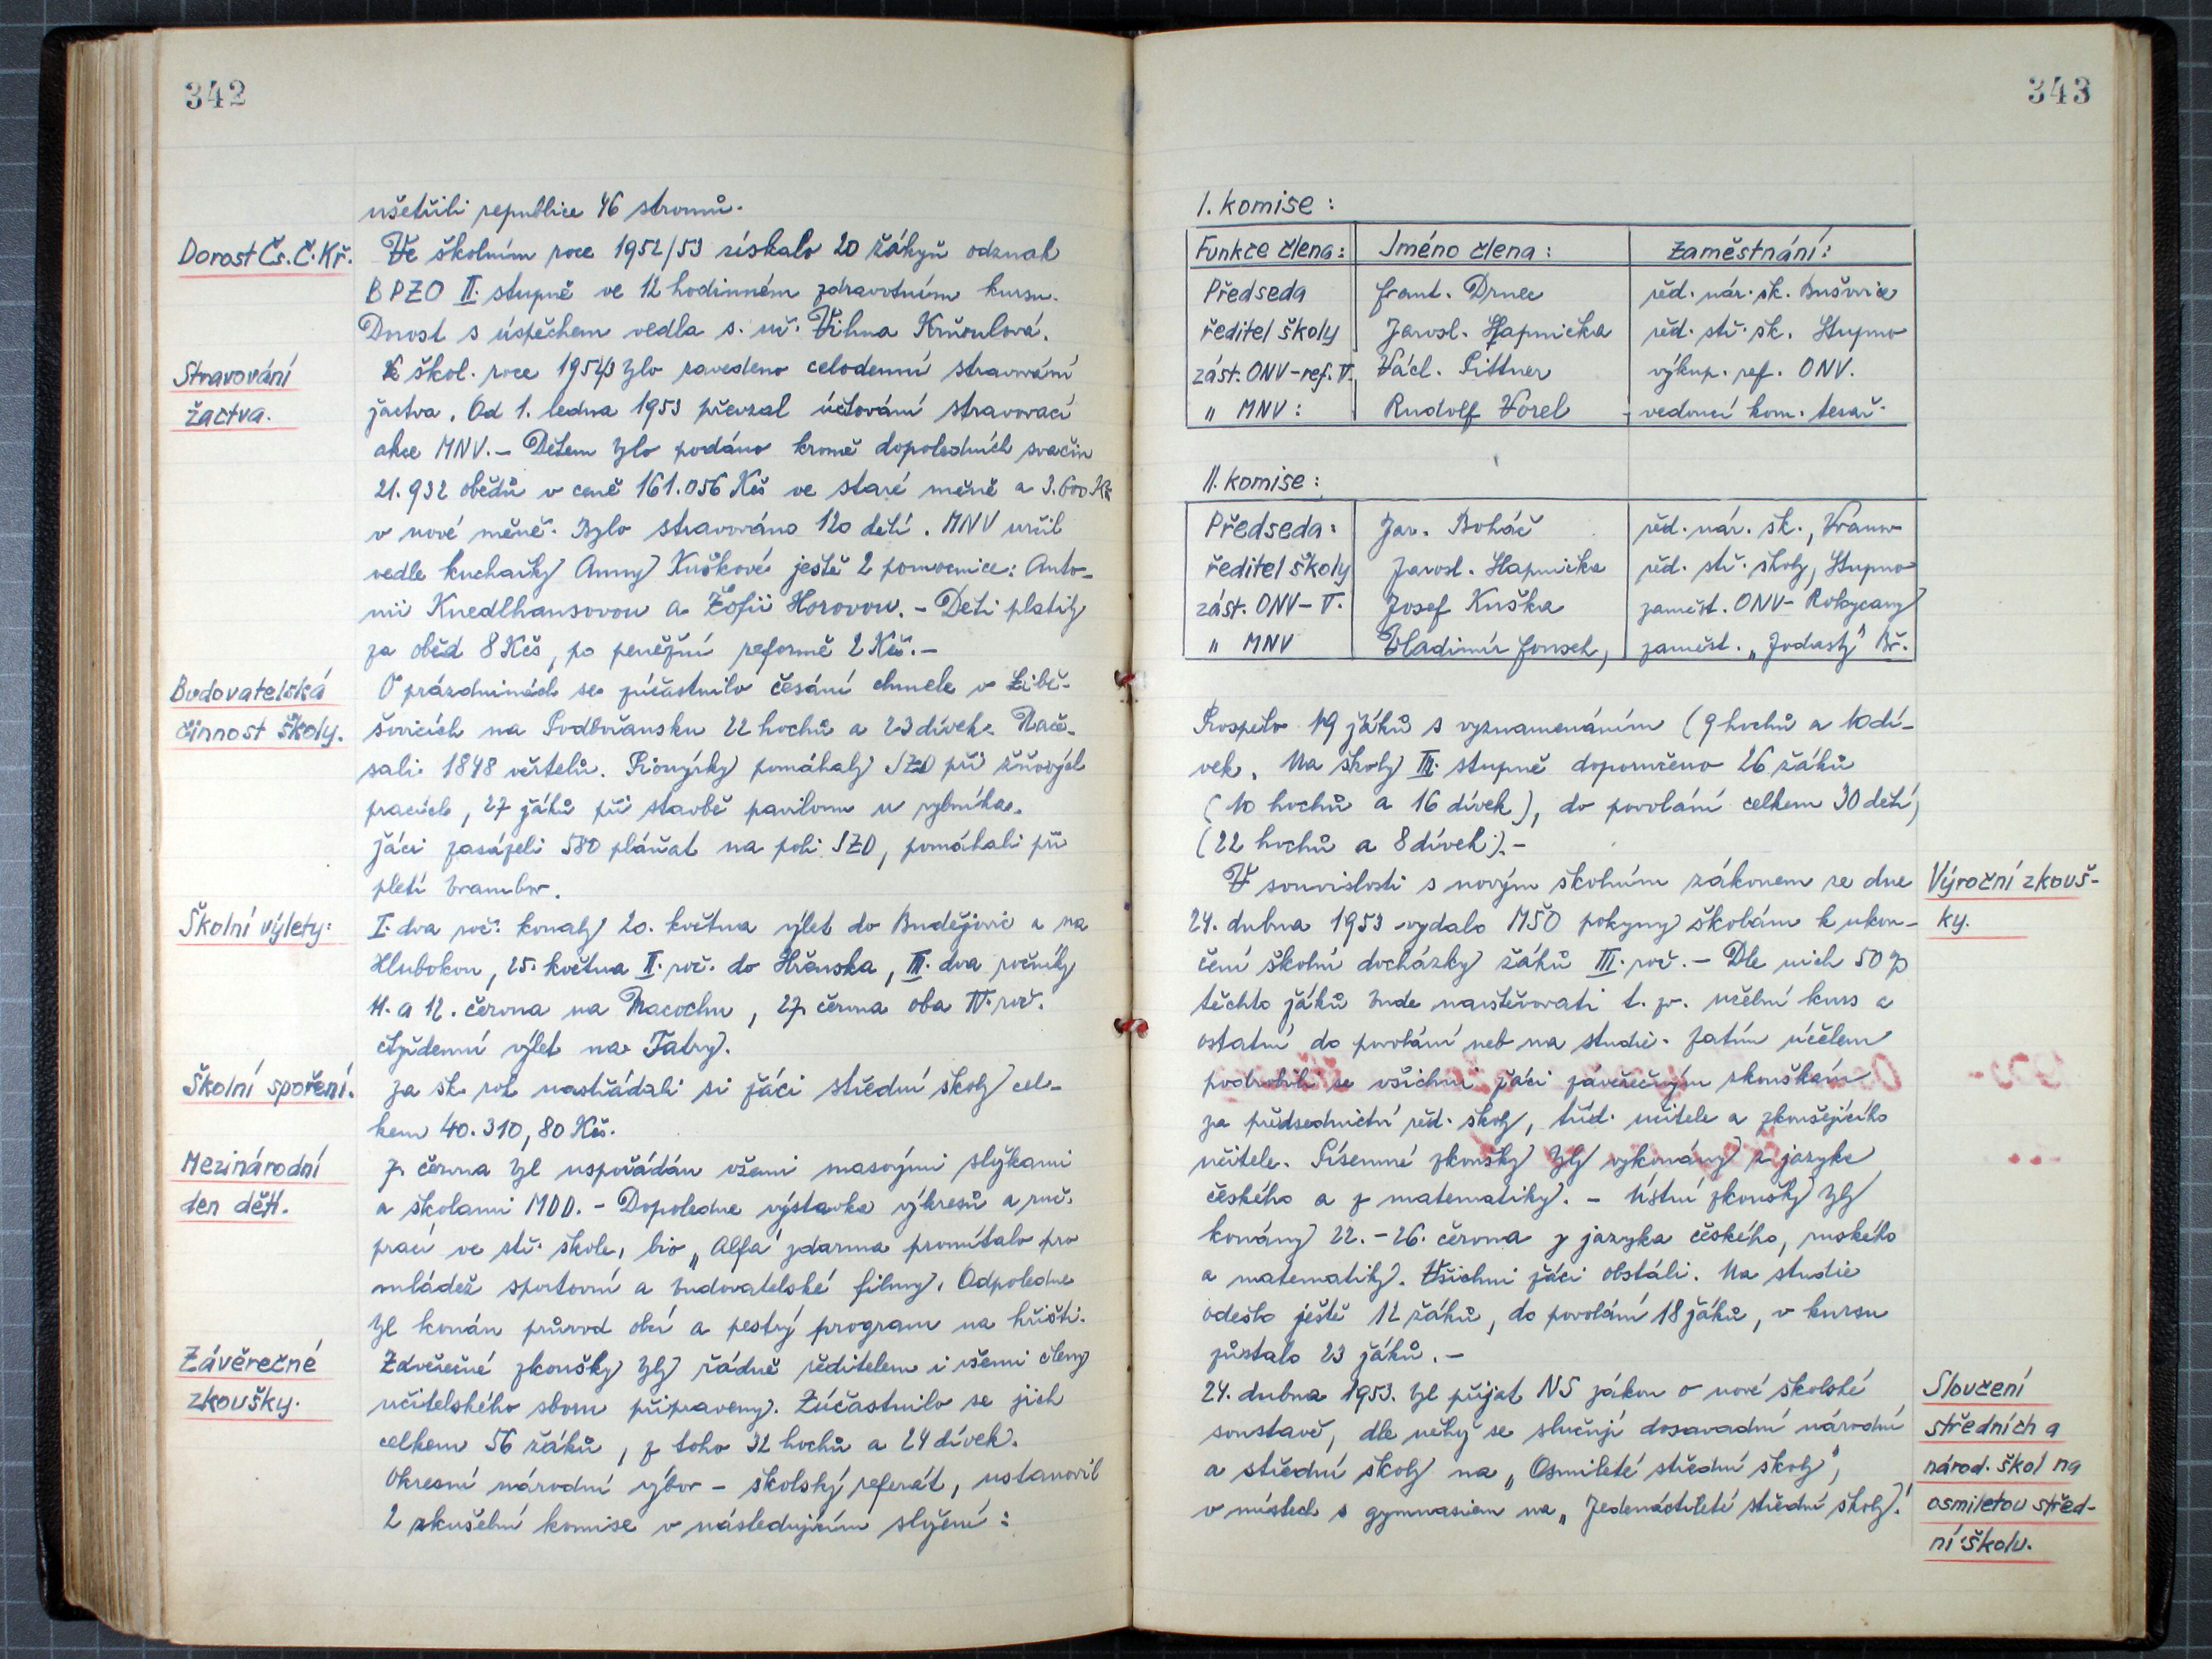 342
ušetřili republice 46 stromů.
Dorost Čs. Č. Kř.
Ve školním roce 1952/53 získalo 20 žákyň odznak
BPZO II. stupně ve 12 hodinném zdravotním kursu.
Dorost s úspěchem vedla s. uč. Vilma Krůsulová.
Stravování
žactva.
V škol. roce 1952/3 bylo zavedeno celodenní stravování
žactva. Od 1. ledna 1953 převzal účtování stravovací
akce MNV. – Dětem bylo podáno kromě dopoledních svačin
21.932 obědů v ceně 161.056 Kčs ve staré měně a 3.600 Kč
v nové měně. Bylo stravováno 120 dětí. MNV určil
vedle kuchařky Anny Kuškové ještě 2 pomocnice: Anto-
nii Knedlhansovou a Žofii Horovou. – Děti platily
za oběd 8 Kčs, po peněžní reformě 2 Kčs. –
Budovatelská
činnost školy.
O prázdninách se zúčastnilo česání chmele v Liběs-
šovicích na Podbořansku 22 hochů a 23 dívek. Nače-
sali 1848 věrtelů. Pionýrky pomáhaly JZD při žňových
pracích, 27 žáků při stavbě pavilonu u rybníka.
Žáci zasázeli 580 pláňat na poli JZD, pomáhali při
pletí brambor.
Školní výlety.
I. dva roč. konaly 20. května výlet do Budějovic a na
Hlubokou, 25. května II. roč. do Hřenska, III. dva ročníky
11. a 12. června na Macochu, 27. června oba IV. roč.
čtyřdenní výlet na Tatry.
Školní spoření.
Za šk. rok nastřádali si žáci střední školy cel-
kem 40.310,80 Kčs.
Mezinárodní
den dětí.
7. června byl uspořádán všemi masovými složkami
a školami MDD. – Dopoledne výstavka výkresů a ruč.
prací ve stř. škole, bio „Alfa" zdarma promítalo pro
mládež sportovní a budovatelské filmy. Odpoledne
byl konán průvod obcí a pestrý program na hřišti.
Závěrečné
zkoušky.
Závěrečné zkoušky byly řádně ředitelem i všemi členy
učitelského sboru připraveny. Zúčastnilo se jich
celkem 56 žáků, z toho 32 hochů a 24 dívek.
Okresní národní výbor – školský referát, ustanovil
2 zkušební komise v následujícím složení:
343
I. komise:
Funkce člena: Jméno člena: Zaměstnání:
Předseda Frant. Drnec řed. nár. šk. Bušovice
ředitel školy Jarosl. Hapnička řed. stř. šk. Stupno
zást. ONV-ref. V. Václ. Pittner výkup. ref. ONV.
" MNV: Rudolf Vorel vedoucí kom. tesař.
II. komise:
Předseda: Jar. Boháč řed. nár. šk., Vranov
ředitel školy Jarosl. Hapnička řed. stř. školy, Stupno
zást. ONV-V. Josef Kuška zaměst. ONV-Rokycany
" MNV Vladimír Fousek, zaměst. „Jodasty" Bř.
Prospělo 19 žáků s vyznamenáním (9 hochů a 10 dí-
vek. Na školy III. stupně doporučeno 26 žáků
(10 hochů a 16 dívek), do povolání celkem 30 dětí
(22 hochů a 8 dívek). –
Výroční zkouš-
ky.
V souvislosti s novým školním zákonem ze dne
24. dubna 1953 vydalo MŠO pokyny školám k ukon-
čení školní docházky žáků III. roč. – Dle nich 50 %
těchto žáků bude navštěvovati t. zv. učební kurs a
ostatní do povolání neb na studie. Zatím účelem
podrobili se všichni žáci závěrečným zkouškám
za předsednictví řed. školy, tříd. učitele a zkoušejícího
učitele. Písemné zkoušky byly vykonány z jazyka
českého a z matematiky. – Ústní zkoušky byly
konány 22. – 26. června z jazyka českého, ruského
a matematiky. Všichni žáci obstáli. Na studie
odešlo ještě 12 žáků, do povolání 18 žáků, v kursu
zůstalo 23 žáků. –
Sloučení
středních a
národ. škol na
osmiletou střed-
ní školu.
24. dubna 1953. byl přijat NS zákon o nové školské
soustavě, dle něhož se slučují dosavadní národní
a střední školy na „Osmileté střední školy",
v místech s gymnasiem na „Jedenáctileté střední školy."